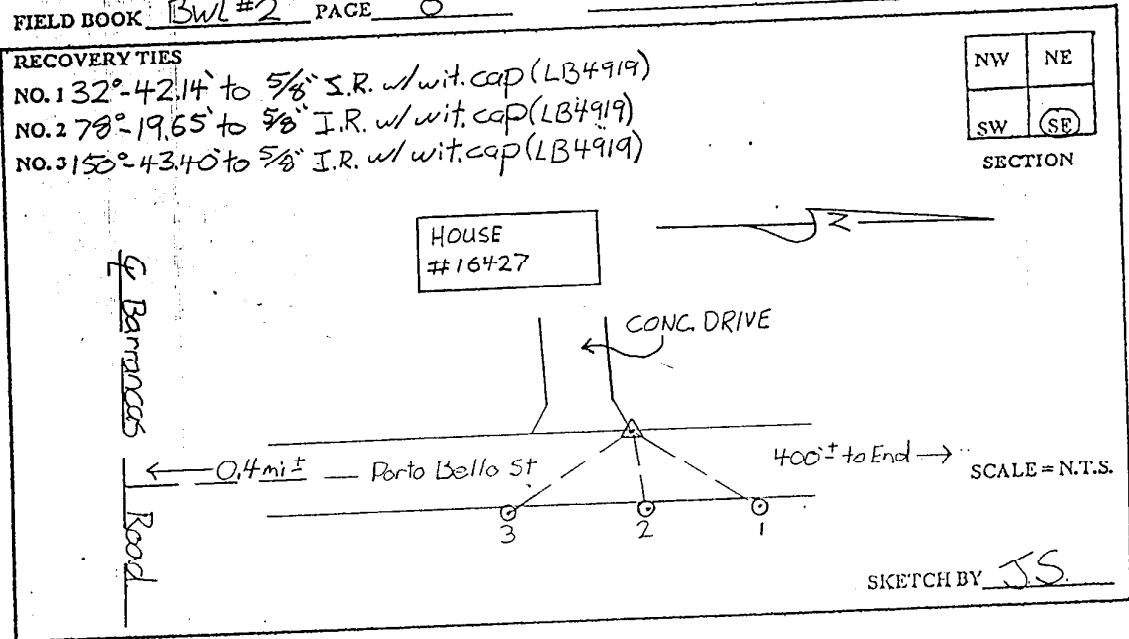 FIELD BOOK BWL #2 PAGE
RECOVERY TIES
NO. 1 32°-42.14' to 5/8" I.R. w/ wit. cap (LB4919)
NO. 2 78°-19.65' to 5/8" I.R. w/ wit. cap (LB4919)
NO. 3 150°-43.40' to 5/8" I.R. w/ wit. cap (LB4919)
NW NE
SW SE
SECTION
HOUSE
#16427
N
CONC. DRIVE
℄ Barrancas Road
0.4 mi ± Porto Bello St
400' ± to End
SCALE = N.T.S.
3 2 1
SKETCH BY J.S.